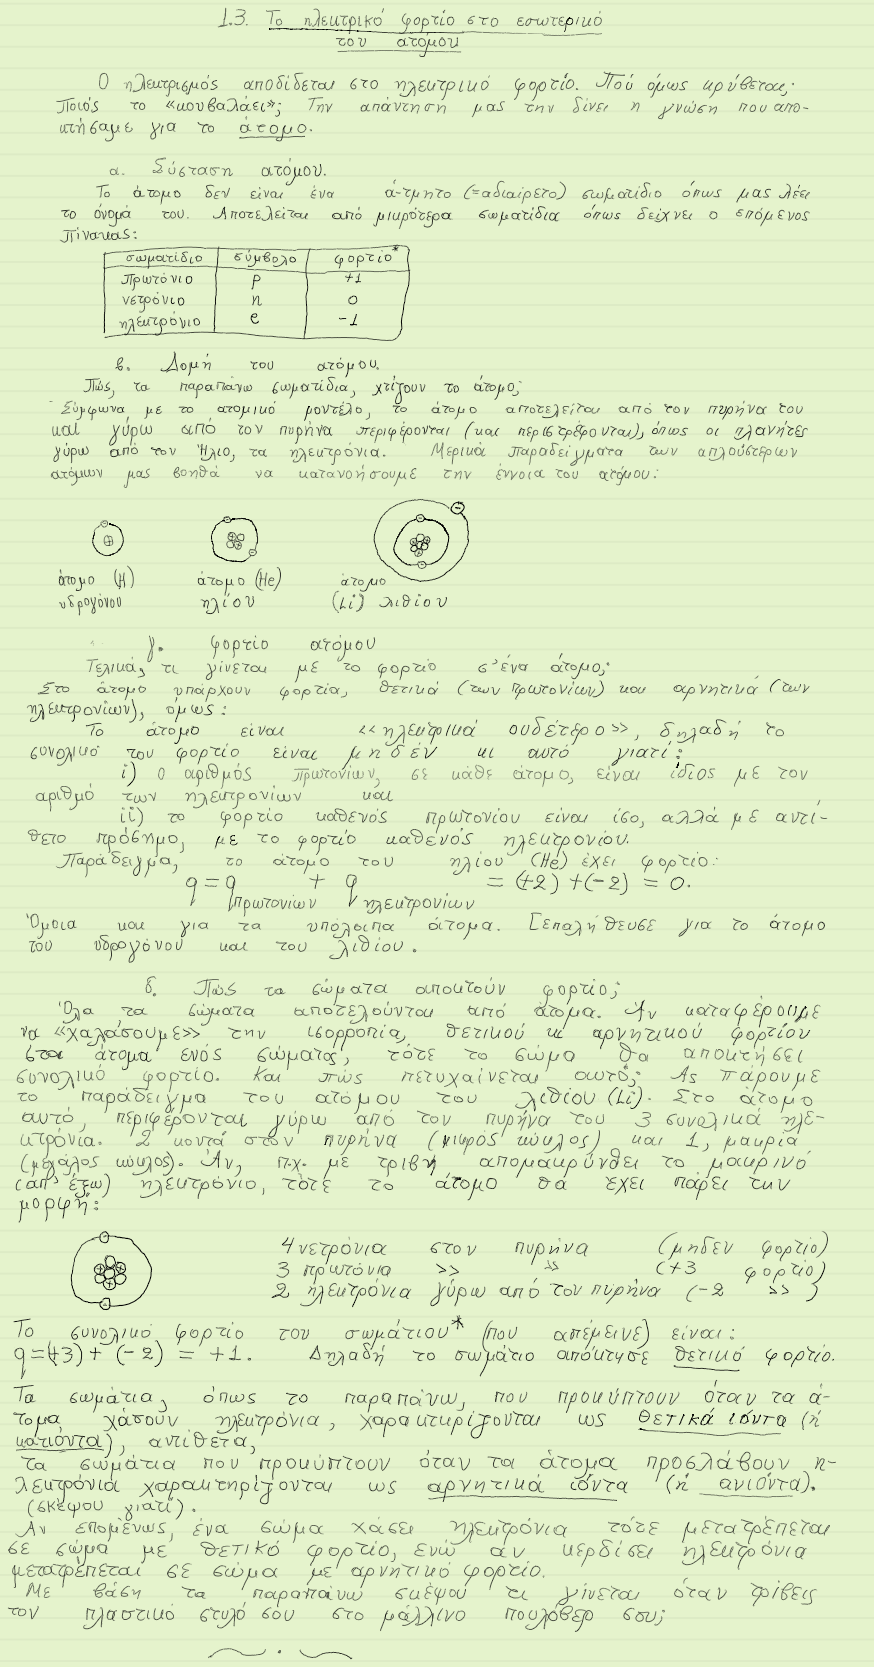 1.3. Το ηλεκτρικό φορτίο στο εσωτερικό
του ατόμου
Ο ηλεκτρισμός αποδίδεται στο ηλεκτρικό φορτίο. Πού όμως κρύβεται;
Ποιός το «κουβαλάει»; Την απάντησή μας την δίνει η γνώση που απο-
κτήσαμε για το άτομο.
α. Σύσταση ατόμου.
Το άτομο δεν είναι ένα ά-τμητο (=αδιαίρετο) σωματίδιο όπως μας λέει
το όνομά του. Αποτελείται από μικρότερα σωματίδια όπως δείχνει ο επόμενος
πίνακας:
σωματίδιο σύμβολο φορτίο*
πρωτόνιο p +1
νετρόνιο n 0
ηλεκτρόνιο e -1
β. Δομή του ατόμου.
Πώς, τα παραπάνω σωματίδια, χτίζουν το άτομο;
Σύμφωνα, με το ατομικό μοντέλο, το άτομο αποτελείται από τον πυρήνα του
και γύρω από τον πυρήνα περιφέρονται (και περιστρέφονται), όπως οι πλανήτες
γύρω από τον Ήλιο, τα ηλεκτρόνια. Μερικά παραδείγματα των απλούστερων
ατόμων μας βοηθά να κατανοήσουμε την έννοια του ατόμου:
άτομο (H) άτομο (He) άτομο
υδρογόνου ηλίου (Li) λιθίου
γ. φορτίο ατόμου
Τελικά, τι γίνεται με το φορτίο σ'ένα άτομο;
Στο άτομο υπάρχουν φορτία, θετικά (των πρωτονίων) και αρνητικά (των
ηλεκτρονίων), όμως:
Το άτομο είναι <<ηλεκτρικά ουδέτερο>>, δηλαδή το
συνολικό του φορτίο είναι μηδέν κι αυτό γιατί:
i) ο αριθμός πρωτονίων, σε κάθε άτομο, είναι ίδιος με τον
αριθμό των ηλεκτρονίων και
ii) το φορτίο καθενός πρωτονίου είναι ίσο, αλλά με αντί-
θετο πρόσημο, με το φορτίο καθενός ηλεκτρονίου.
Παράδειγμα, το άτομο του ηλίου (He) έχει φορτίο:
q = q + q = (+2) + (-2) = 0.
πρωτονίων ηλεκτρονίων
Όμοια και για τα υπόλοιπα άτομα. Επαλήθευσε για το άτομο
του υδρογόνου και του λιθίου.
δ. Πώς τα σώματα αποκτούν φορτίο;
Όλα τα σώματα αποτελούνται από άτομα. Αν καταφέρουμε
να «χαλάσουμε» την ισορροπία, θετικού κι αρνητικού φορτίου
στα άτομα ενός σώματος, τότε το σώμα θα αποκτήσει
συνολικό φορτίο. Και πώς πετυχαίνεται αυτό; Ας πάρουμε
το παράδειγμα του ατόμου του λιθίου (Li). Στο άτομο
αυτό, περιφέρονται γύρω από τον πυρήνα του 3 συνολικά ηλε-
κτρόνια. 2 κοντά στον πυρήνα (μικρός κύκλος) και 1, μακριά
(μεγάλος κύκλος). Αν, π.χ. με τριβή απομακρύνθει το μακρινό
(απ' έξω) ηλεκτρόνιο, τότε το άτομο θα έχει πάρει την
μορφή:
4 νετρόνια στον πυρήνα (μηδέν φορτίο)
3 πρωτόνια >> >> (+3 φορτίο)
2 ηλεκτρόνια γύρω από τον πυρήνα (-2 >> )
Το συνολικό φορτίο του σωμάτιου* (που απέμεινε) είναι:
q = (+3) + (-2) = +1. Δηλαδή το σωμάτιο απόκτησε θετικό φορτίο.
Τα σωμάτια, όπως το παραπάνω, που προκύπτουν όταν τα ά-
τομα χάσουν ηλεκτρόνια, χαρακτηρίζονται ως θετικά ιόντα (ή
κατιόντα), αντίθετα,
τα σωμάτια που προκύπτουν όταν τα άτομα προσλάβουν η-
λεκτρόνια χαρακτηρίζονται ως αρνητικά ιόντα (ή ανιόντα).
(σκέψου γιατί).
Αν επομένως, ένα σώμα χάσει ηλεκτρόνια τότε μετατρέπεται
σε σώμα με θετικό φορτίο, ενώ αν κερδίσει ηλεκτρόνια
μετατρέπεται σε σώμα με αρνητικό φορτίο.
Με βάση τα παραπάνω σκέψου τι γίνεται όταν τρίβεις
τον πλαστικό στυλό σου στο μάλλινο πουλόβερ σου;